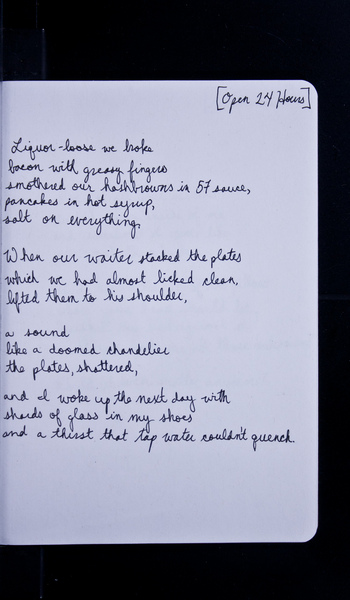 [Open 24 Hours]
Liquor-loose we broke
bacon with greasy fingers
smothered our hashbrowns in 57 sauce,
pancakes in hot syrup,
salt on everything.
When our waiter stacked the plates
which we had almost licked clean,
lifted them to his shoulder,
a sound
like a doomed chandelier
the plates, shattered,
and I woke up the next day with
shards of glass in my shoes
and a thirst that tap water couldn't quench.